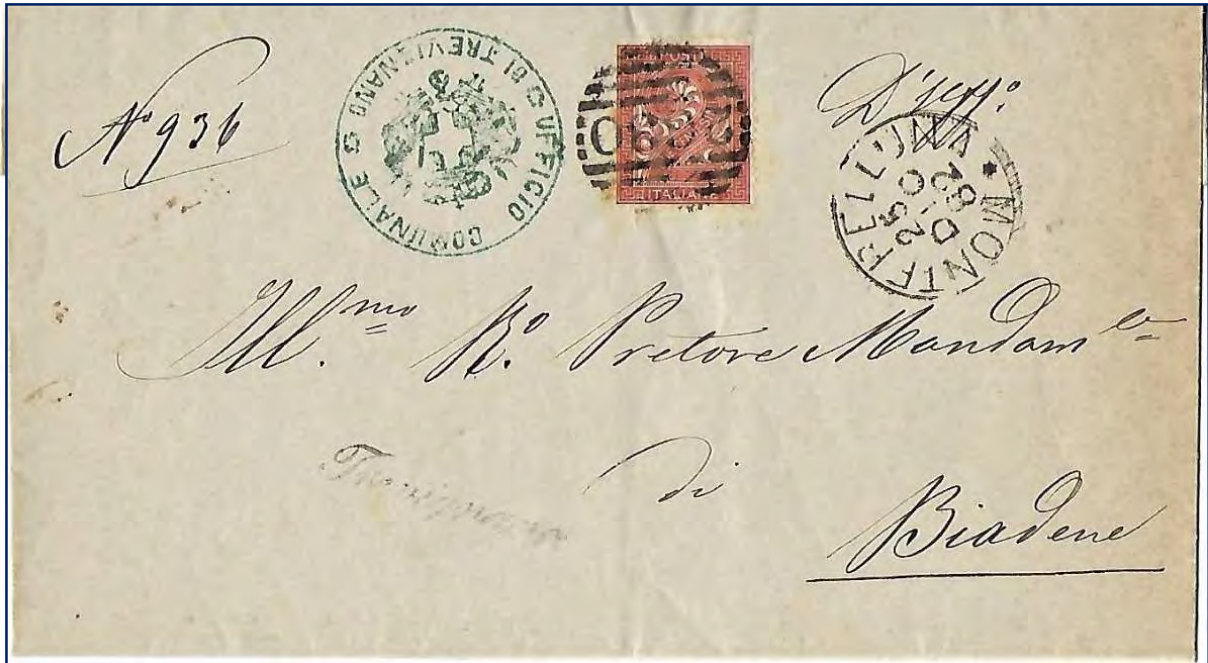 Nº 936
UFFICIO COMUNALE DI TREVIGNANO
ITALIANE
D'uff.º
MONTEBELLUNA
25 DIC 82
Ill.mo R.º Pretore Mandam.le
di
Trevignano
Biadene